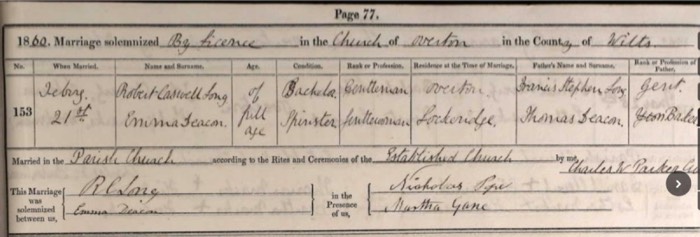 Page 77.
1860. Marriage solemnized By Licence in the Church of Overton in the County of Wilts
No. When Married. Name and Surname. Age. Condition. Rank or Profession. Residence at the Time of Marriage. Father's Name and Surname. Rank or Profession of Father.
153 Feby. 21st Robert Caswell Long of full age Bachelor Gentleman Overton Francis Stephen Long Gent.
Emma Deacon Spinster Gentlewoman Lockeridge Thomas Deacon
Married in the Parish Church according to the Rites and Ceremonies of the Established Church by me, Charles W Parker
This Marriage was solemnized between us, R C Long Emma Deacon in the Presence of us, Nicholas Pope Martha Gane